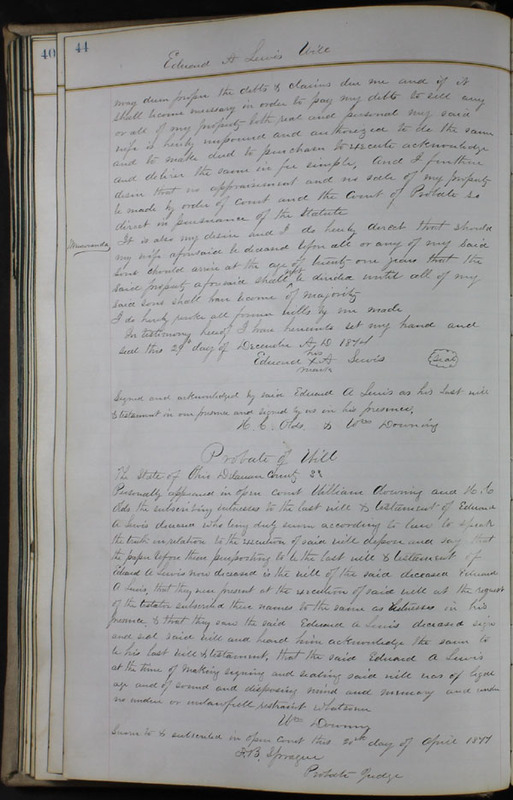 40
44
Edward A Lewis Will
may deem proper the debts & claims due me and if it
shall become necessary in order to pay my debts to sell any
or all of my property both real and personal my said
wife is hereby empowered and authorized to do the same
and to make deed to purchaser to execute acknowledge
and deliver the same in fee simple, And I further
desire that no appraisement and no sale of my property
be made by order of Court and the Court of Probate so
direct in pursuance of the Statute
It is also my desire and I do hereby direct that should
my wife aforesaid be deceased before all or any of my said
sons should arrive at the age of twenty one years that the
said property aforesaid shall not be divided until all of my
said sons shall have become of majority
I do hereby revoke all former wills by me made
In testimony hereof I have hereunto set my hand and
seal this 29th day of December A, D 1874
his
Edward X A Lewis Seal
mark
Signed and acknowledged by said Edward A Lewis as his last will
& testament in our presence and signed by us in his presence,
H. C. Olds. & Wm Downing
Probate of Will
The State of Ohio Delaware County SS
Personally appeared in open court William Downing and H. C
Olds the subscribing witnesses to the last will & testament of Edward
A Lewis deceased who being duly sworn according to law to speak
the truth in relation to the execution of said will depose and say that
the paper before them purporting to be the last will & testament of
Edward A Lewis now deceased is the will of the said deceased Edward
A Lewis, that they were present at the execution of said will at the request
of the testator subscribed their names to the same as witnesses in his
presence, & that they saw the said Edward A Lewis deceased sign
and seal said will and heard him acknowledge the same to
be his last will & testament, that the said Edward A Lewis
at the time of making signing and sealing said will was of legal
age and of sound and disposing mind and memory and under
no undue or unlawfull restraint whatsoever
Wm Downing
Sworn to & subscribed in open Court this 20th day of April 1877
F. B. Sprague
Probate Judge